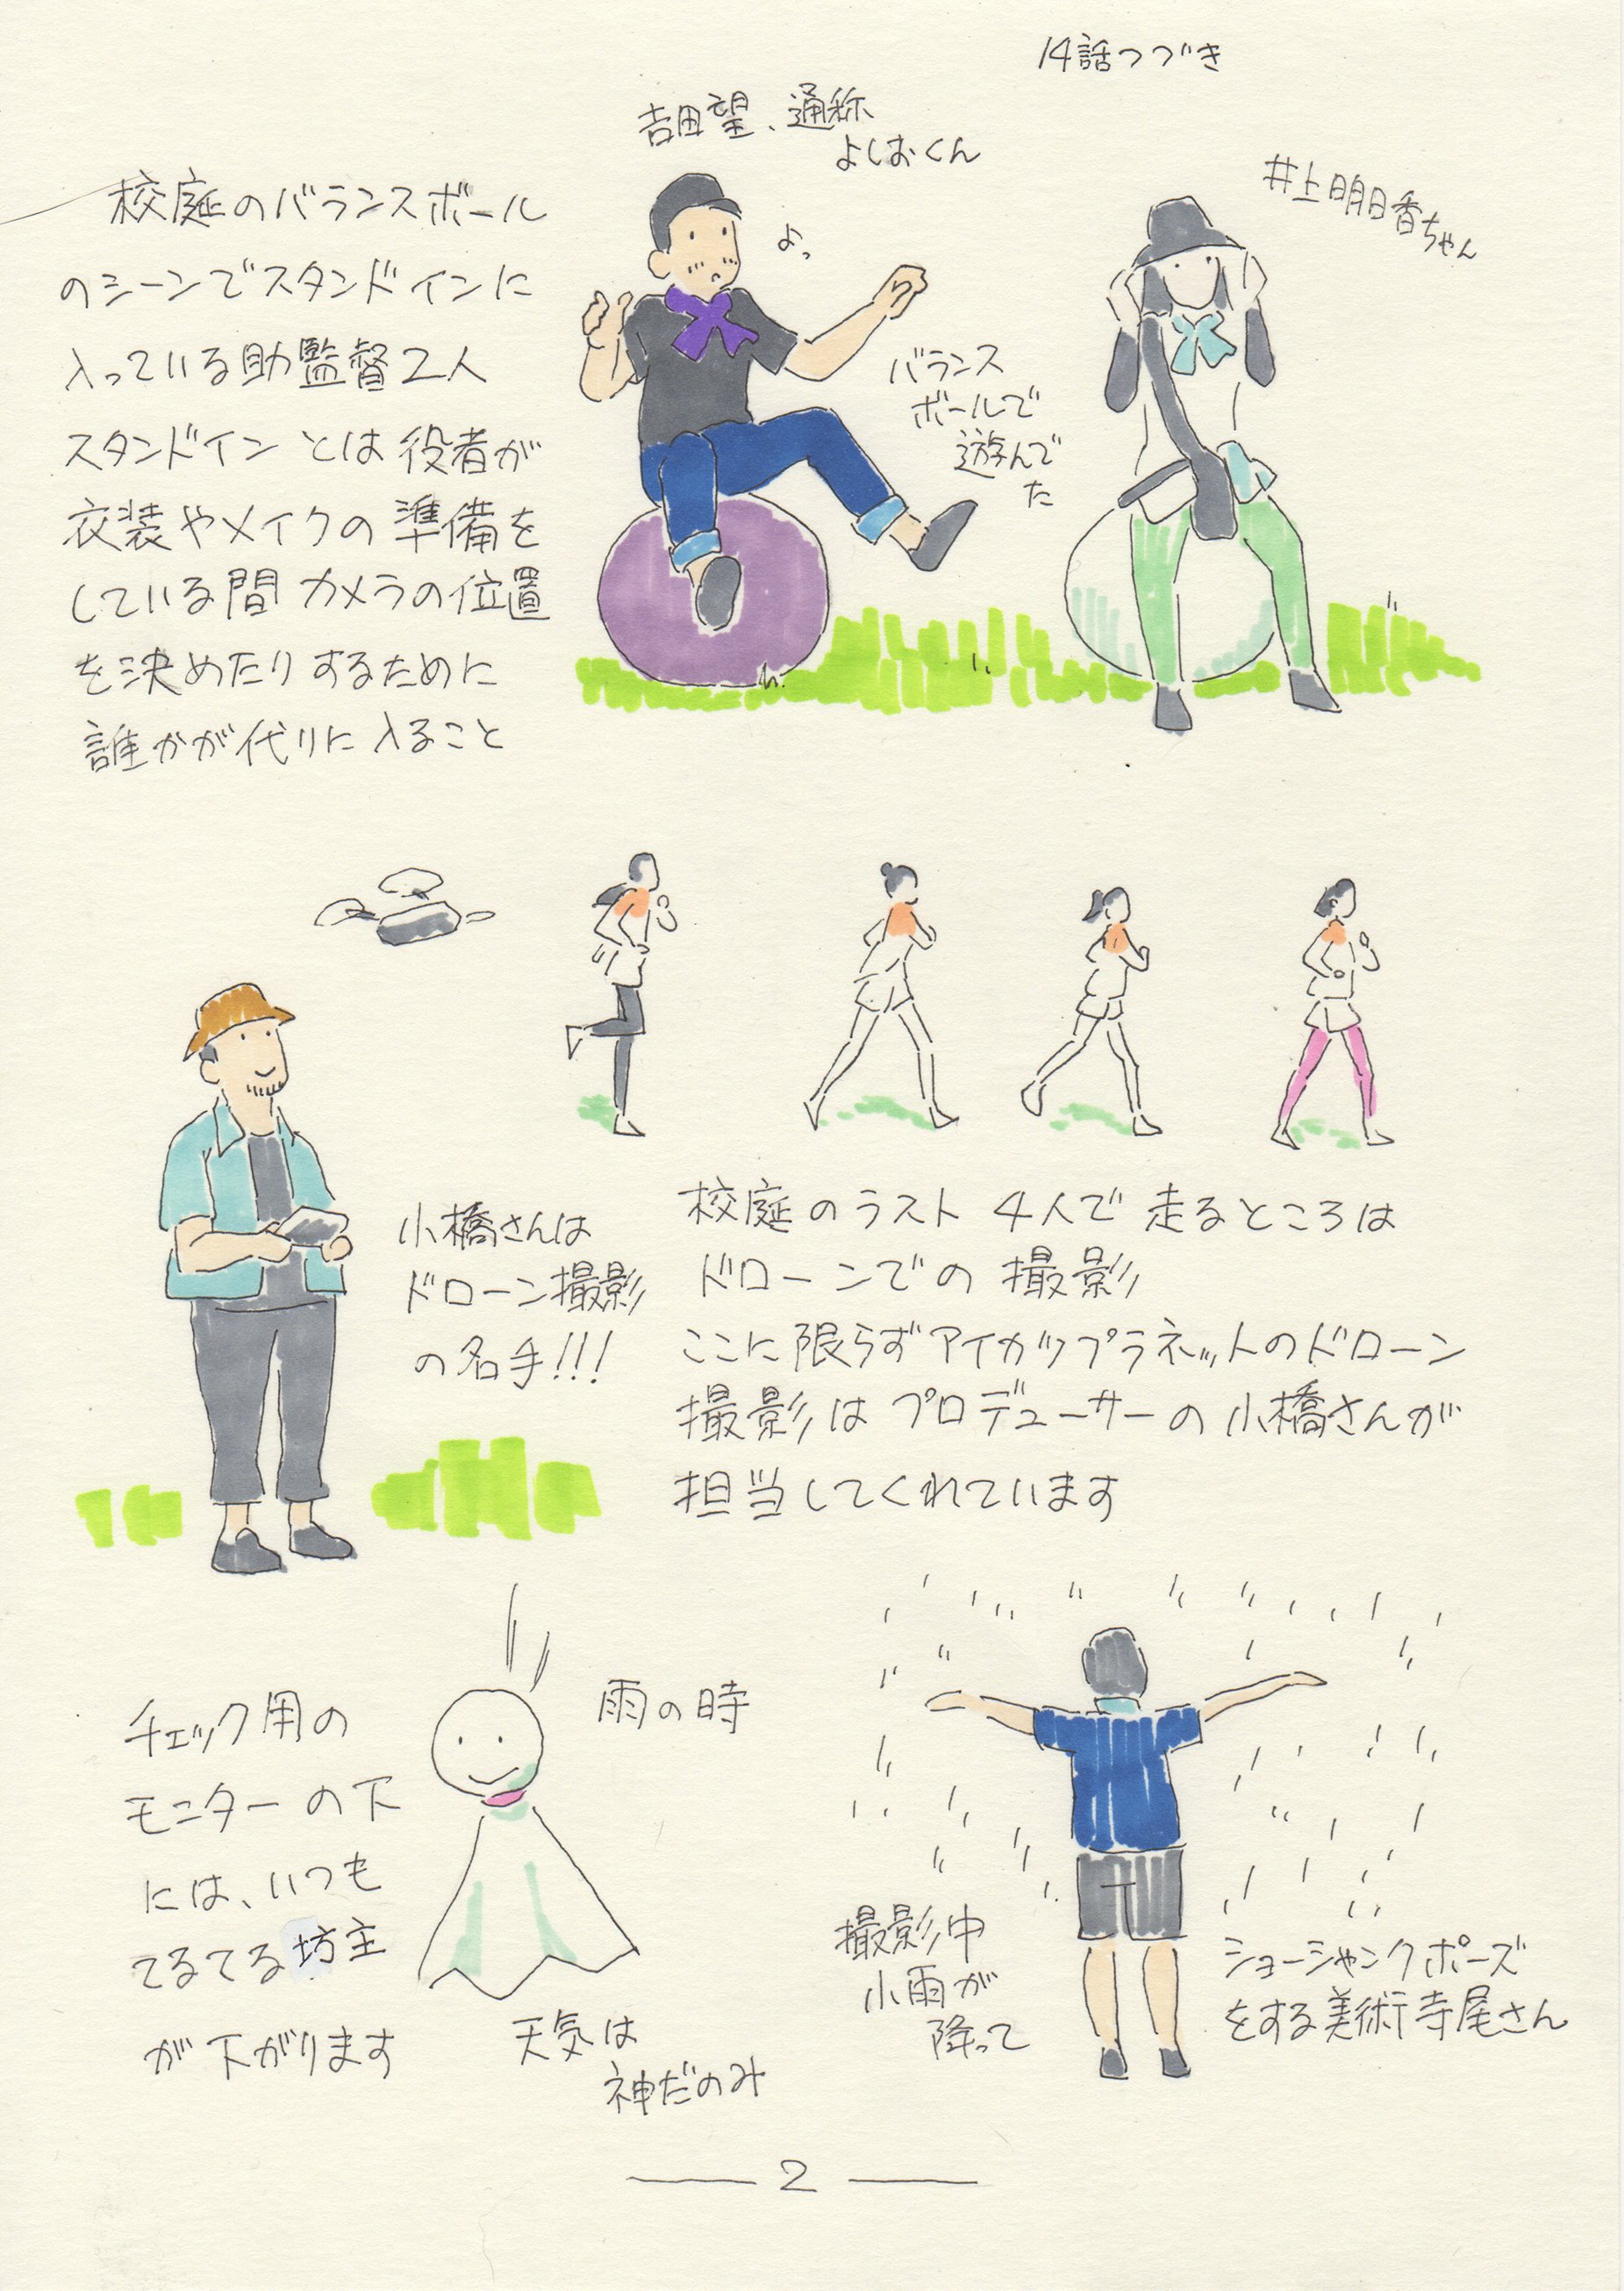 14話つづき
吉田望、通称
よしおくん
井上明日香ちゃん
校庭のバランスボール
のシーンでスタンドインに
入っている助監督2人
スタンドインとは役者が
衣装やメイクの準備を
している間カメラの位置
を決めたりするために
誰かが代りに入ること
よっ
バランス
ボールで
遊んで
た
小橋さんは
ドローン撮影
の名手!!!
校庭のラスト 4人で走るところは
ドローンでの撮影
ここに限らずアイカツプラネットのドローン
撮影はプロデューサーの小橋さんが
担当してくれています
チェック用の
モニターの下
には、いつも
てるてる坊主
が下がります
雨の時
天気は
神だのみ
撮影中
小雨が
降って
ショーシャンクポーズ
をする美術寺尾さん
2